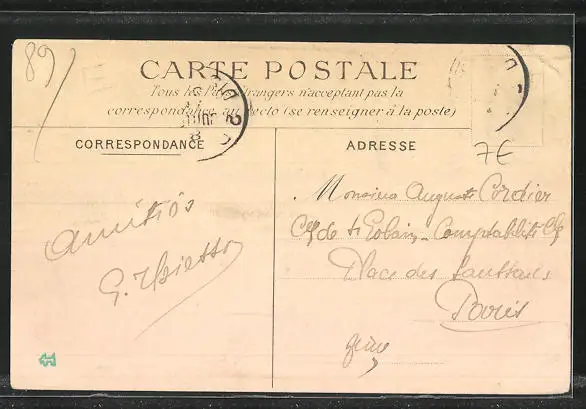 89
CARTE POSTALE
Tous les Pays étrangers n'acceptent pas la
correspondance au recto (se renseigner à la poste)
CORRESPONDANCE
ADRESSE
7€
Monsieur Auguste Cordier
Cie de St Gobain - Comptabilité
Place des Saussaies
Paris
Amitiés
G.